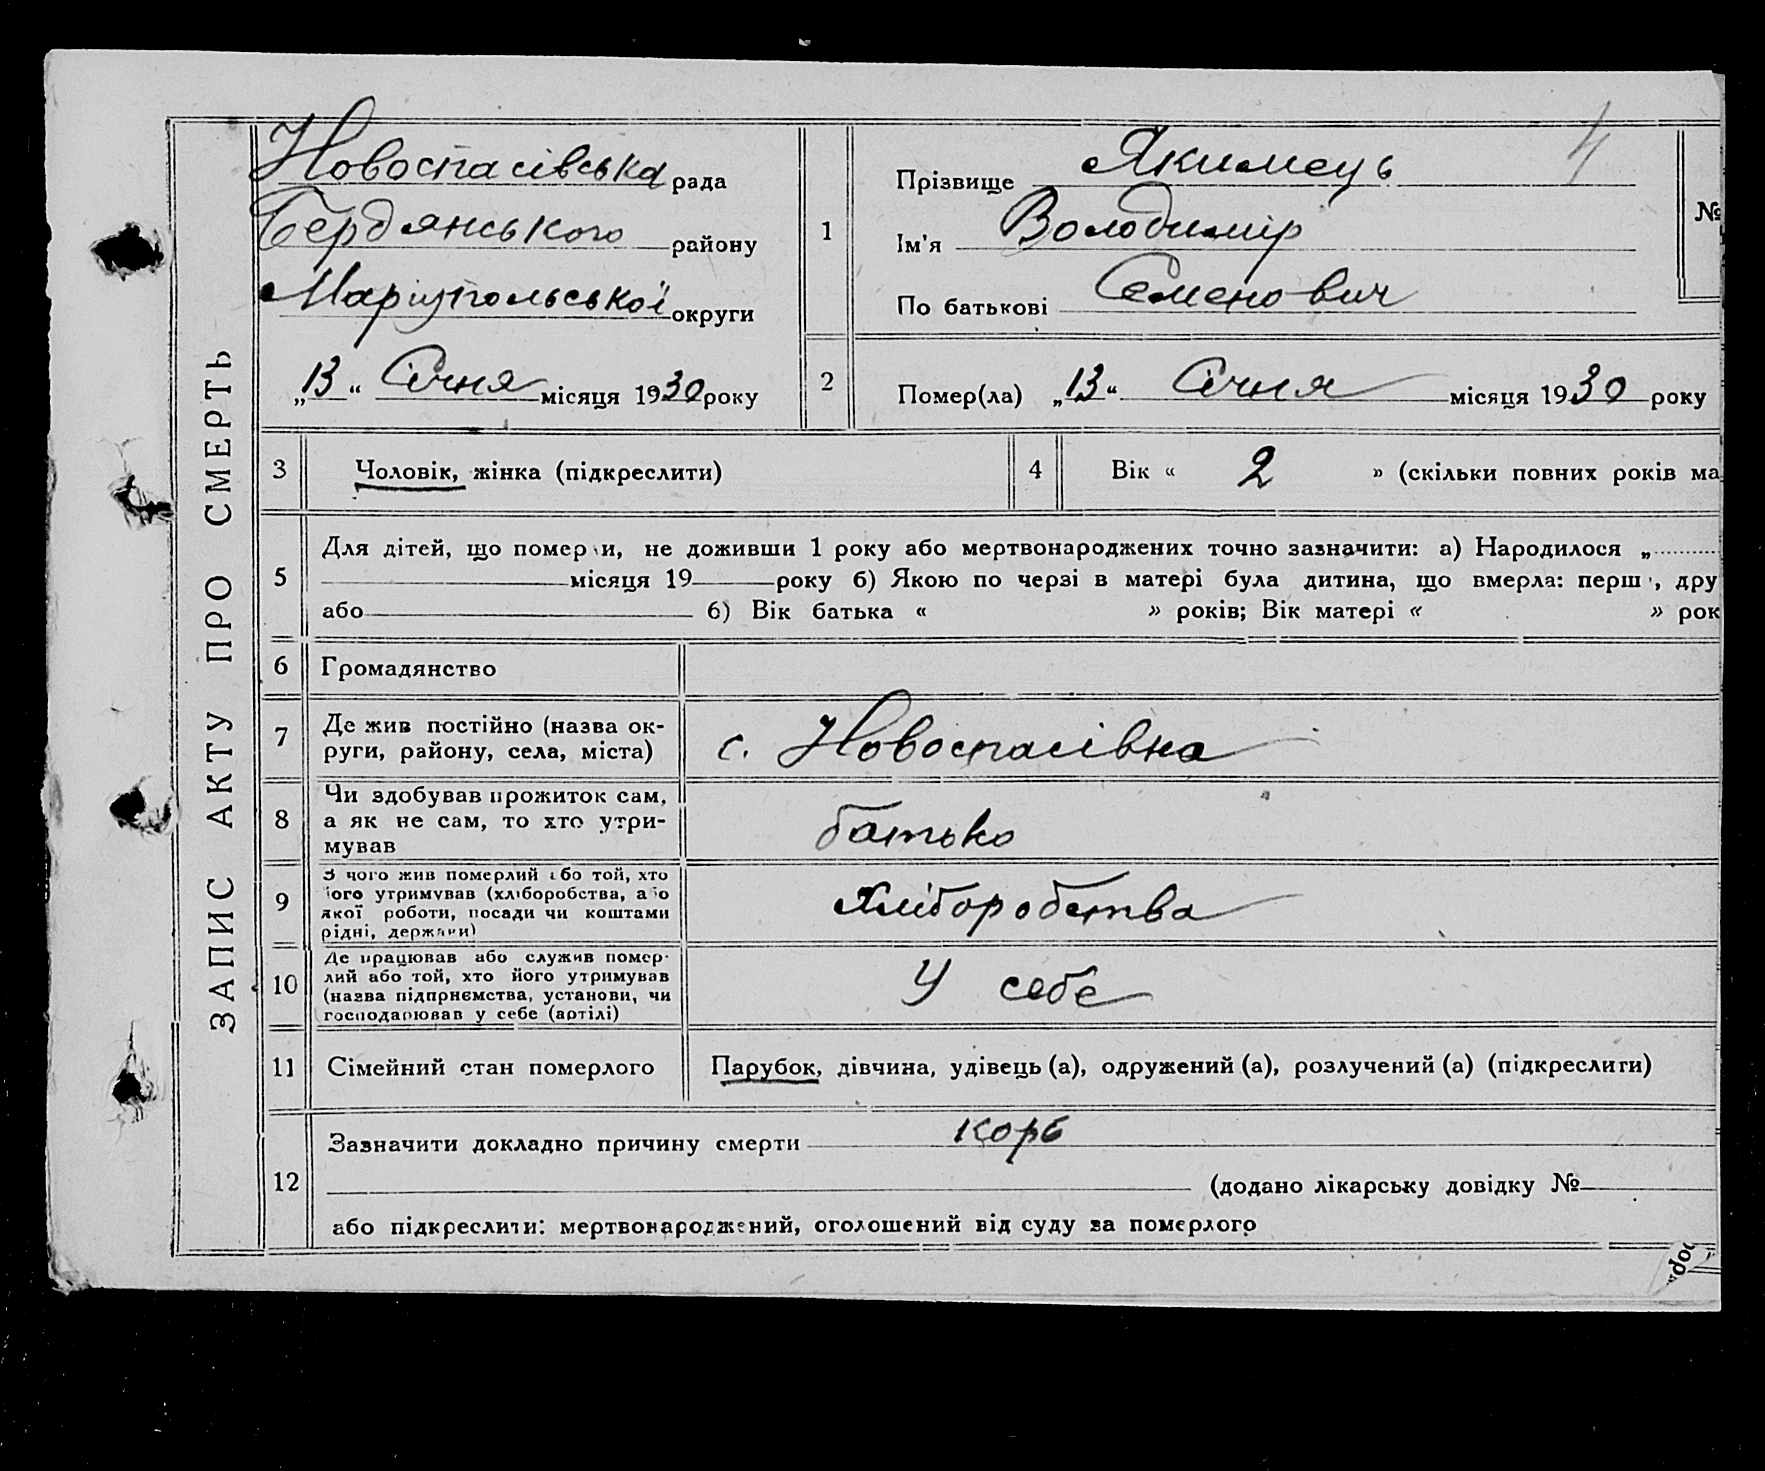 ЗАПИС АКТУ ПРО СМЕРТЬ
Новоспасівська рада
Бердянського району
Маріупольської округи
„13“ Січня місяця 1930 року
1
Прізвище Якимець
4
Ім'я Володимир
По батькові Семенович
№
2
Помер(ла) „13“ Січня місяця 1930 року
3 Чоловік, жінка (підкреслити)
4 Вік « 2 » (скільки повних років ма
5
Для дітей, що померли, не доживши 1 року або мертвонароджених точно зазначити: а) Народилося „
місяця 19 року б) Якою по черзі в матері була дитина, що вмерла: перш , дру
або 6) Вік батька « » років; Вік матері « » рок
6 Громадянство
7 Де жив постійно (назва ок-
руги, району, села, міста)
с. Новоспасівка
8 Чи здобував прожиток сам,
а як не сам, то хто утри-
мував
батько
9 З чого жив померлий або той, хто
його утримував (хліборобства, або
якої роботи, посади чи коштами
рідні, держави)
Хліборобства
10 Де працював або служив помер-
лий або той, хто його утримував
(назва підприємства, установи, чи
господарював у себе (артілі)
У себе
11 Сімейний стан померлого
Парубок, дівчина, удівець (а), одружений (а), розлучений (а) (підкреслити)
12
Зазначити докладно причину смерти корь
(додано лікарську довідку №
або підкреслити: мертвонароджений, оголошений від суду за померлого